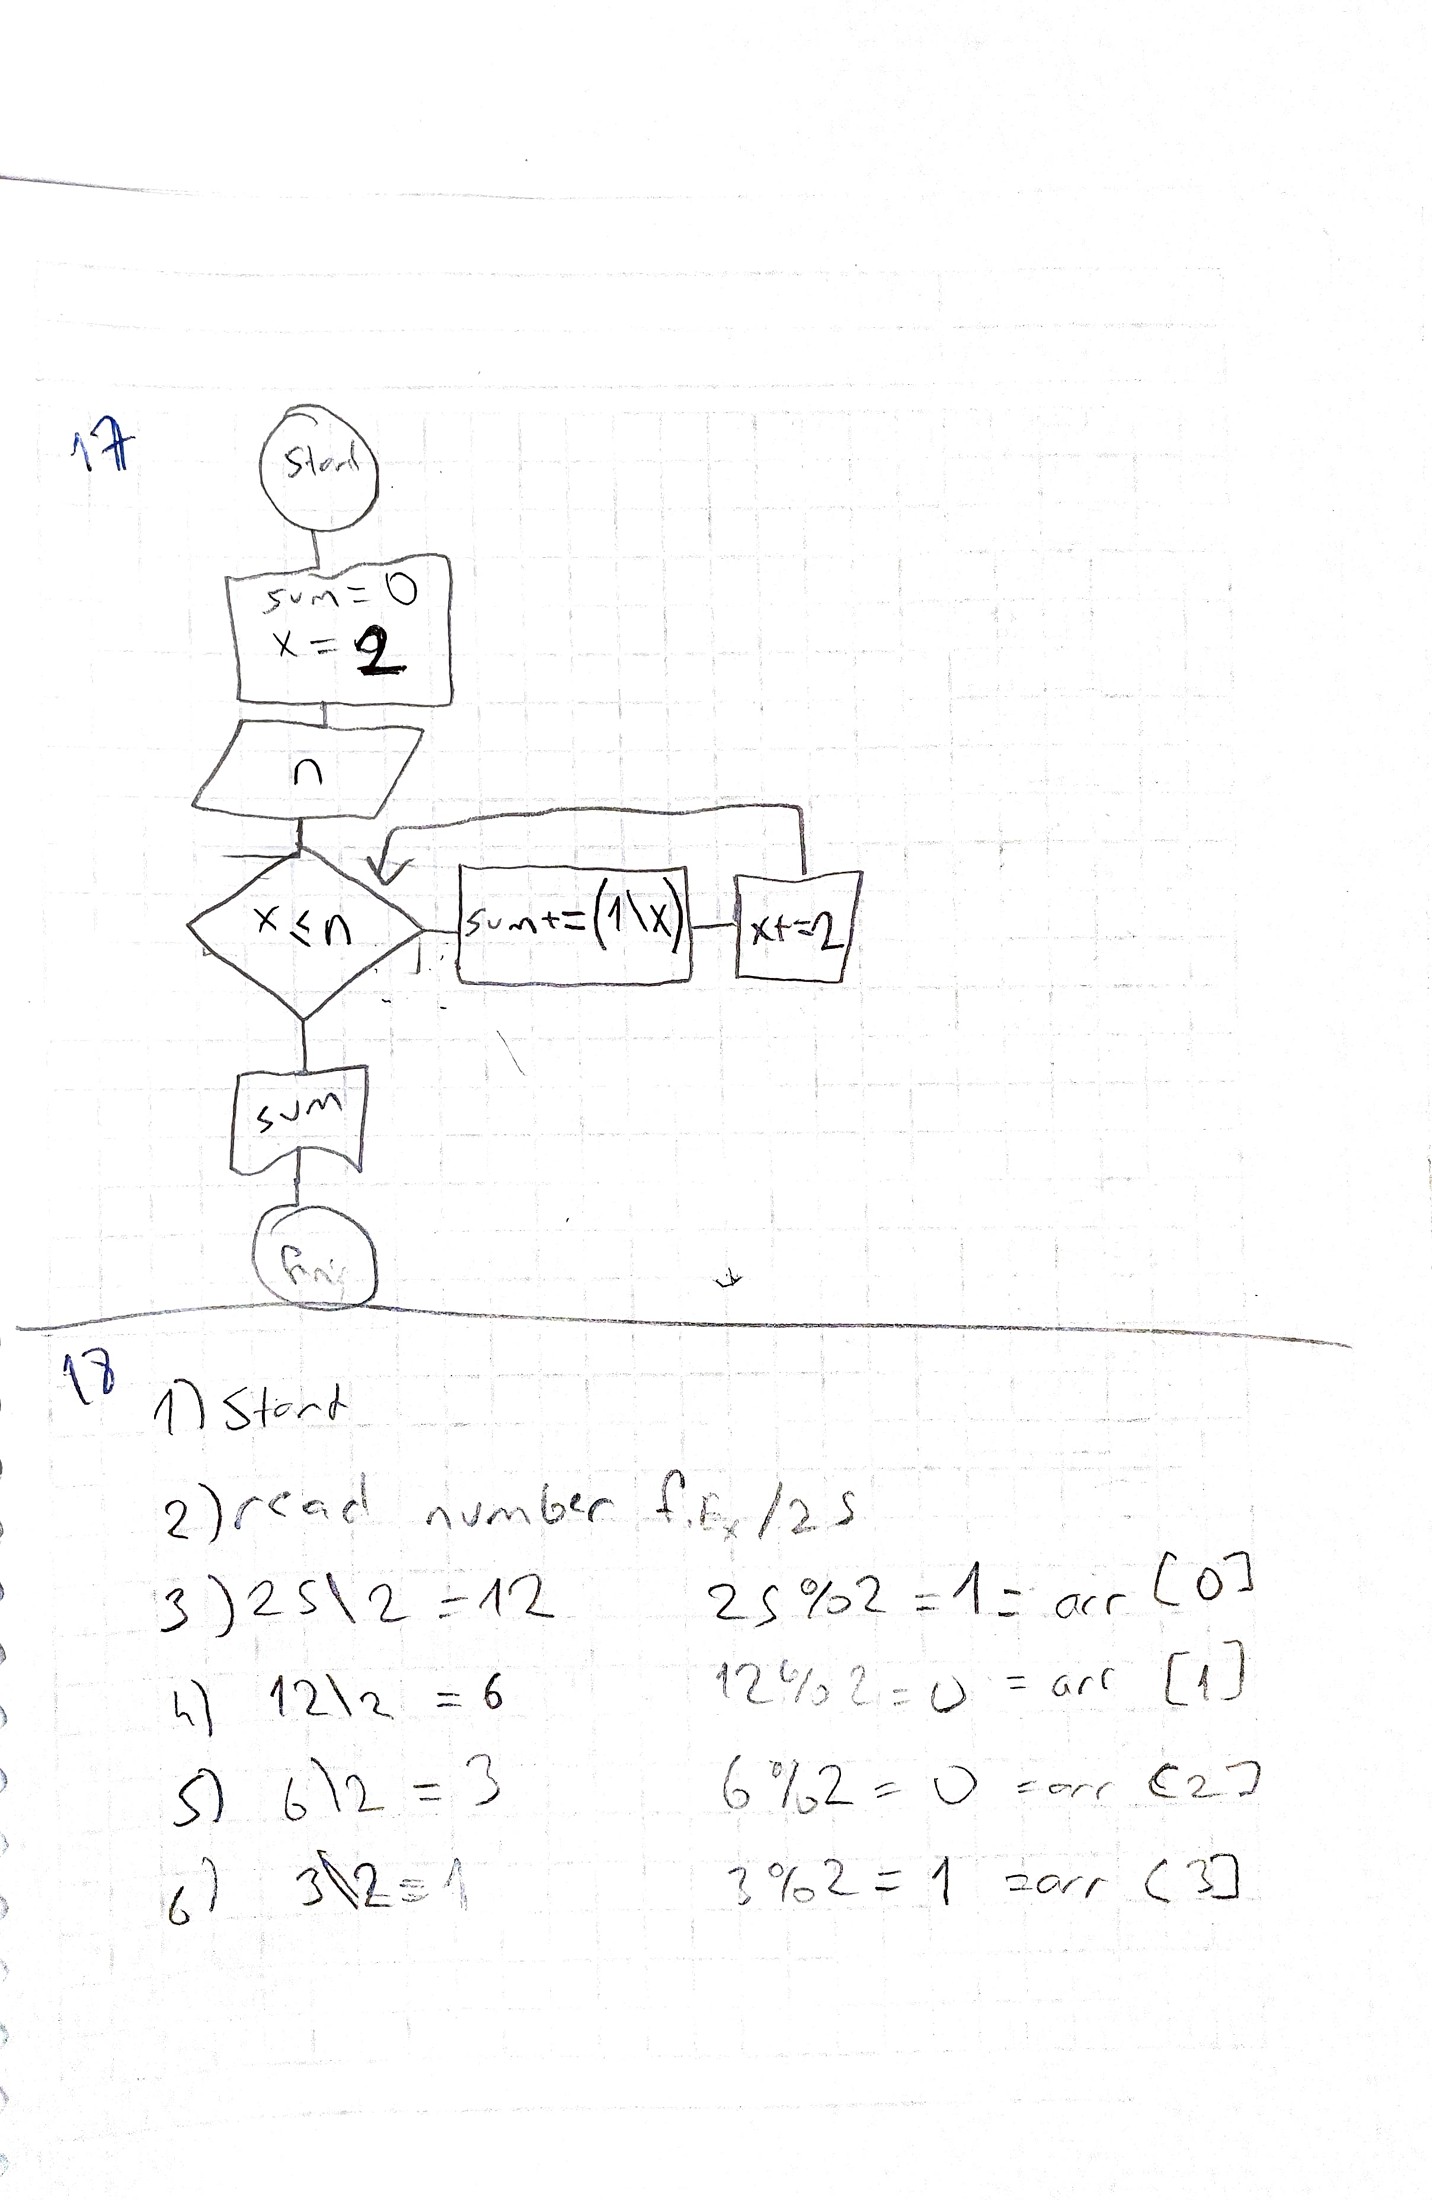 17
Start
sum = 0
x = 2
n
x ≤ n
sum+=(1\x)
x+=2
sum
18
1) Start
2) read number f.Ex /25
3) 25\2 = 12 25%2 = 1 = arr [0]
4) 12\2 = 6 12%2 = 0 = arr [1]
5) 6\2 = 3 6%2 = 0 = arr [2]
6) 3\2 = 1 3%2 = 1 = arr [3]